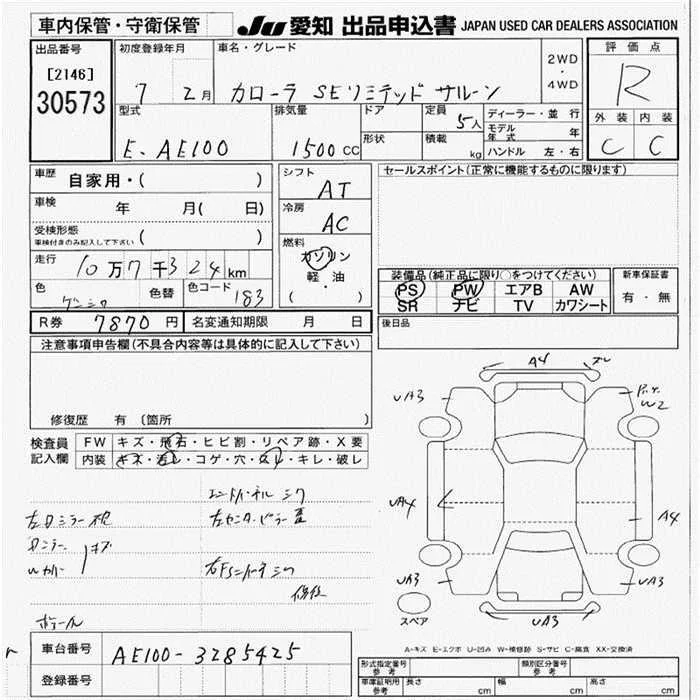 車内保管・守衛保管
JU 愛知 出品申込書 JAPAN USED CAR DEALERS ASSOCIATION
出品番号
[2146]
30573
初度登録年月
7 2月
車名・グレード
カローラ SEリミテッド サルーン
2WD
・
4WD
評価点
R
外装 内装
C C
型式
E-AE100
排気量
1500cc
ドア
形状
定員
5人
積載
kg
ディーラー・並行
モデル年式 年
ハンドル 左・右
車歴
自家用・( )
車検
年 月( 日)
受検形態
車検付きのみ記入して下さい ( )
走行
10万7千324km
色
色替
色コード
183
シフト
AT
冷房
AC
燃料
ガソリン
軽・油
( )
セールスポイント(正常に機能するものに限ります)
装備品(純正品に限り○をつけてください)
PS PW エアB AW
SR ナビ TV カワシート
新車保証書
有・無
R券 7870円
名変通知期限 月 日
後日品
注意事項申告欄(不具合内容等は具体的に記入して下さい)
修復歴 有 〔箇所 〕
検査員記入欄
FW キズ・飛石・ヒビ割・リペア跡・X要
内装 キズ・汚レ・コゲ・穴・スレ・キレ・破レ
A4
UA3
W2
UA4
A4
UA3
UA3
UA3
スペア
A-キズ E-エクボ U-凹み W-補修跡 S-サビ C-腐食 XX-交換済
車台番号
AE100-3285425
登録番号
形式指定番号
参考
類別区分番号
参考
車庫証明用
参考
長さ cm
幅 cm
高さ cm